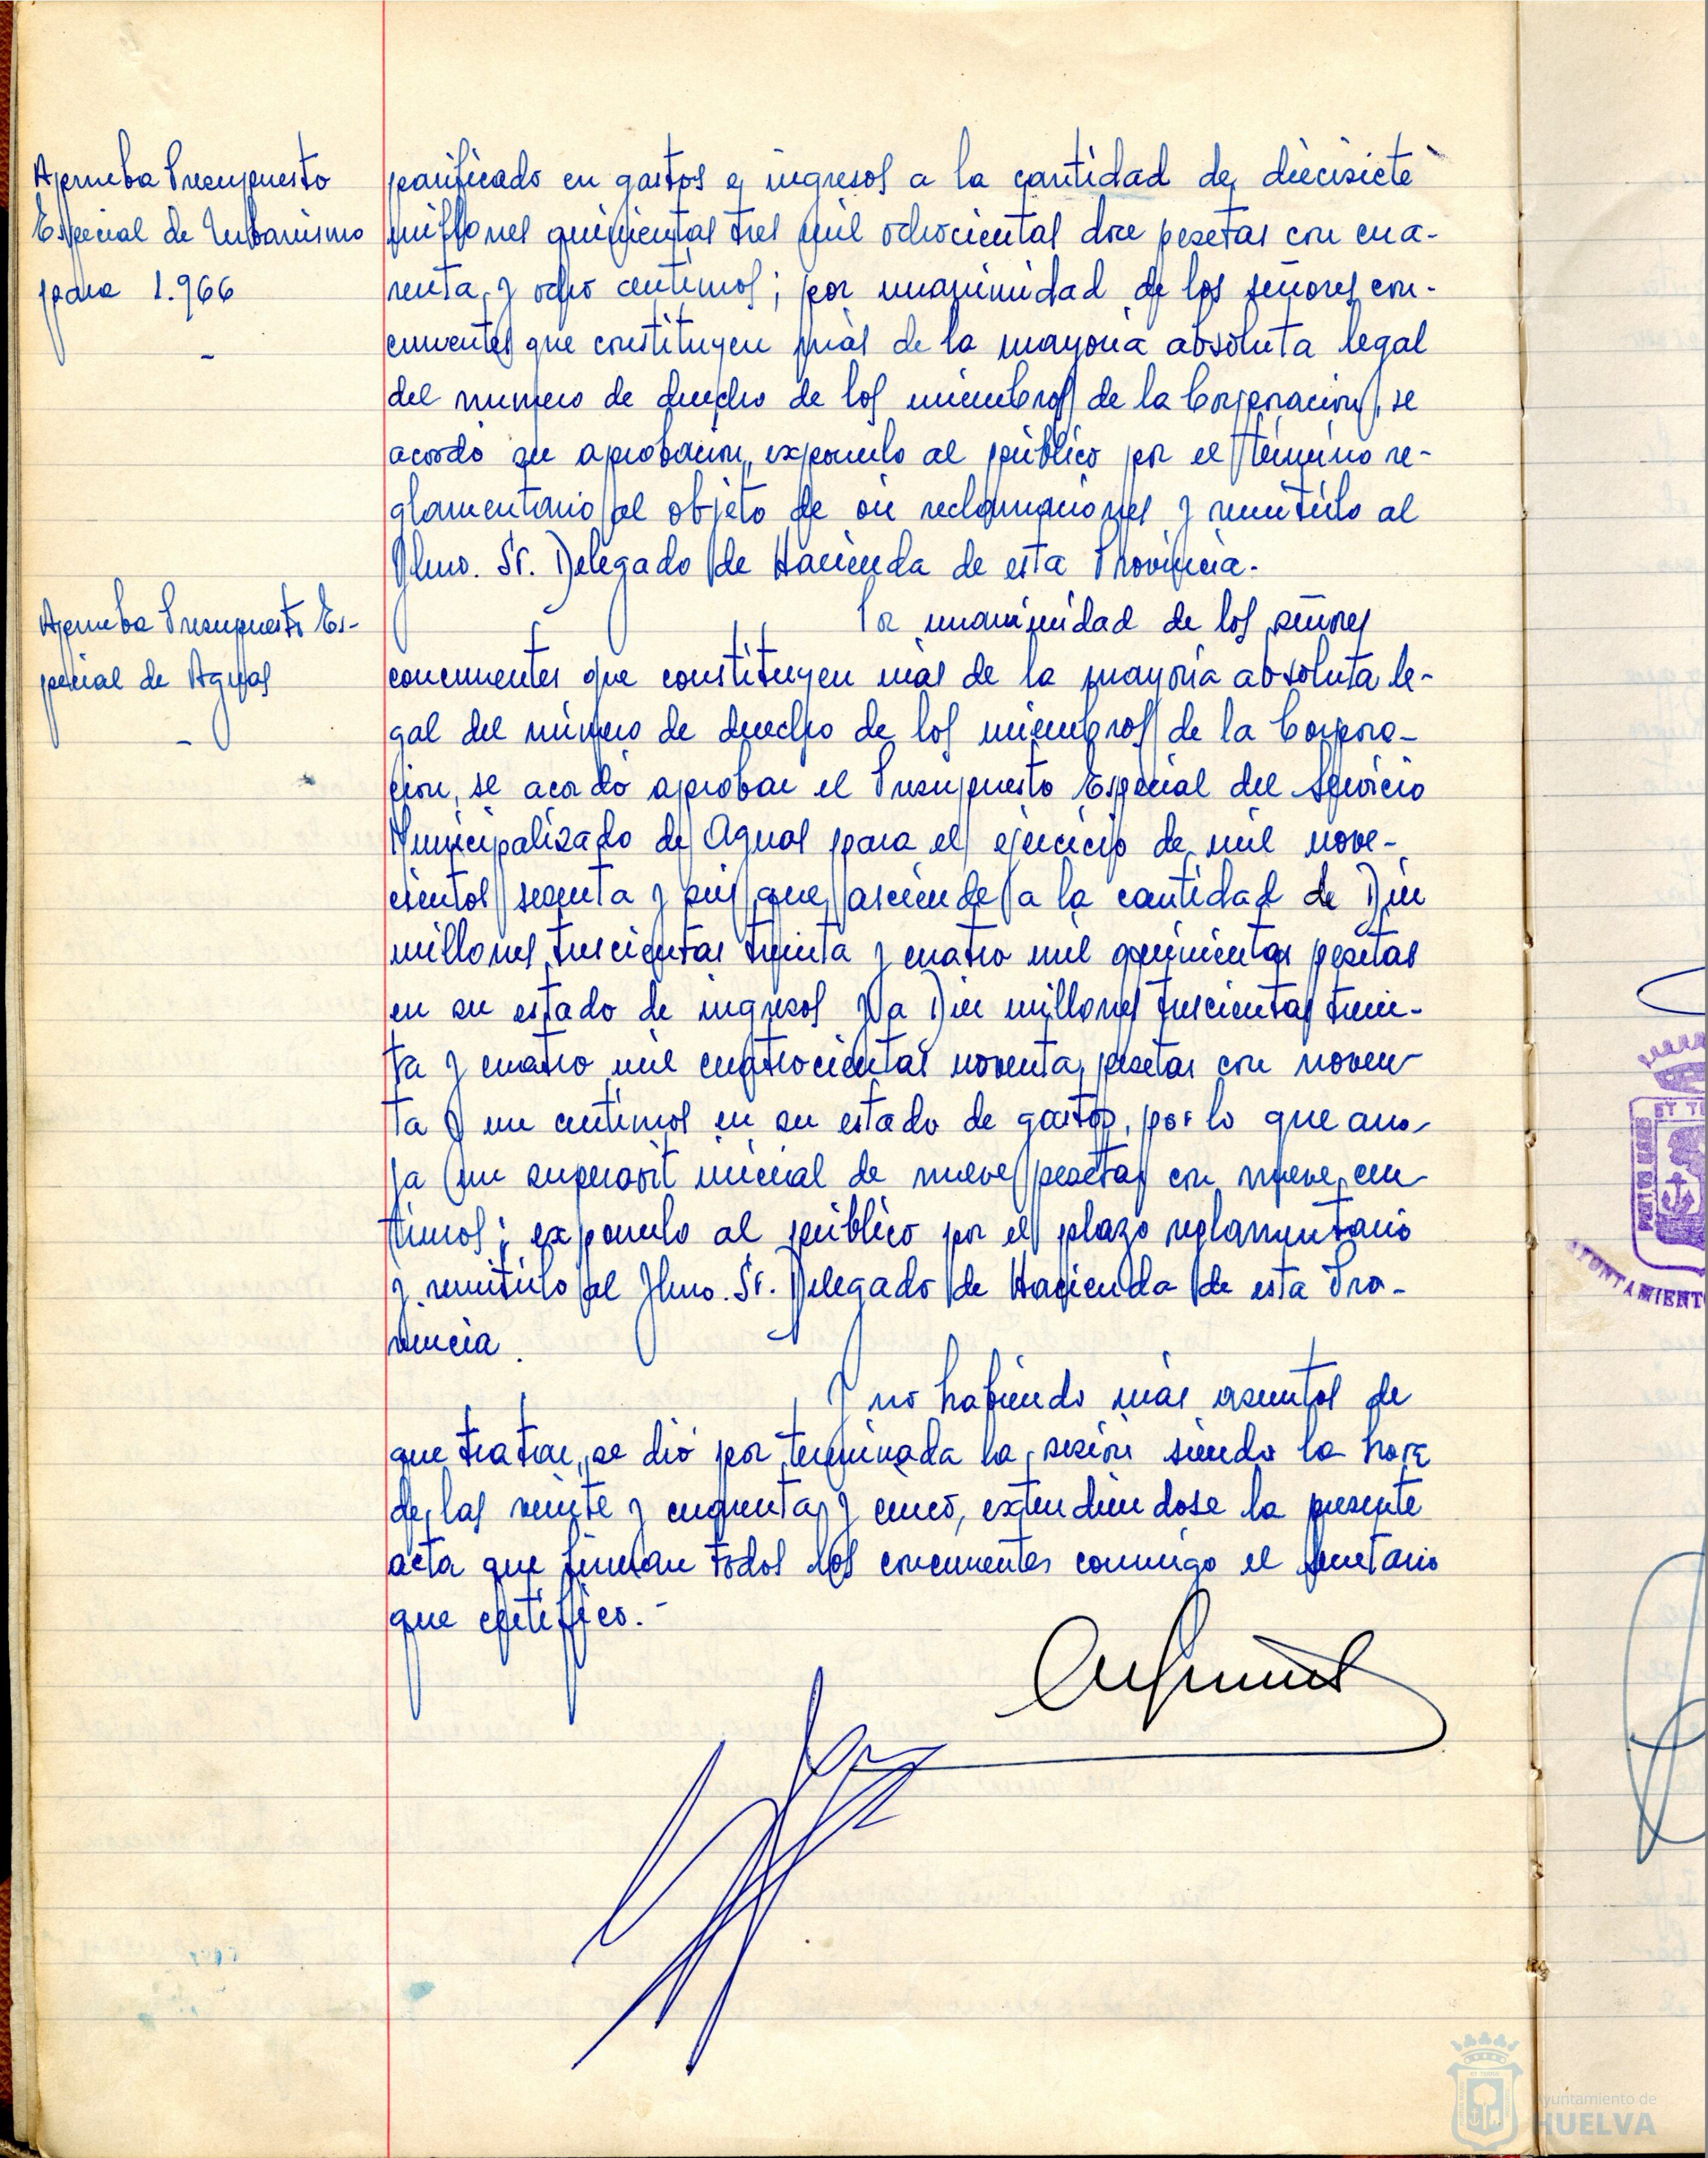 Aprueba Presupuesto
Especial de Urbanismo
para 1.966
-
parificado en gastos e ingresos a la cantidad de diecisiete
millones quinientas tres mil ochocientas doce pesetas con cua-
renta y ocho centimos; por unanimidad de los señores con-
currentes que constituyen más de la mayoria absoluta legal
del numero de derecho de los miembros de la Corporacion, se
acordo su aprobacion, exponerlo al público por el término re-
glamentario al objeto de oir reclamaciones y remitirlo al
Ylmo. Sr. Delegado de Hacienda de esta Provincia.
Aprueba Presupuesto Es-
pecial de Aguas
-
Por unanimidad de los señores
concurrentes que constituyen más de la mayoría absoluta le-
gal del número de derecho de los miembros de la Corpora-
cion, se acordó aprobar el Presupuesto Especial del Servicio
Municipalizado de Aguas para el ejercicio de mil nove-
cientos sesenta y seis que asciende a la cantidad de Diez
millones trescientas treinta y cuatro mil quinientas pesetas
en su estado de ingresos y a Diez millones trescientas trein-
ta y cuatro mil cuatrocientas noventa pesetas con noven-
ta y un centimos en su estado de gastos, por lo que arro-
ja un superavit inicial de nueve pesetas con nueve cen-
timos; exponerlo al público por el plazo reglamentario
y remitirlo al Ylmo. Sr. Delegado de Hacienda de esta Pro-
vincia.
Y no habiendo más asuntos de
que tratar, se dió por terminada la sesión siendo la hora
de las veinte y cuarenta y cinco, extendiendose la presente
acta que firman todos los concurrentes conmigo el secretario
que certifico.-
AYUNTAMIENTO
Ayuntamiento de
HUELVA